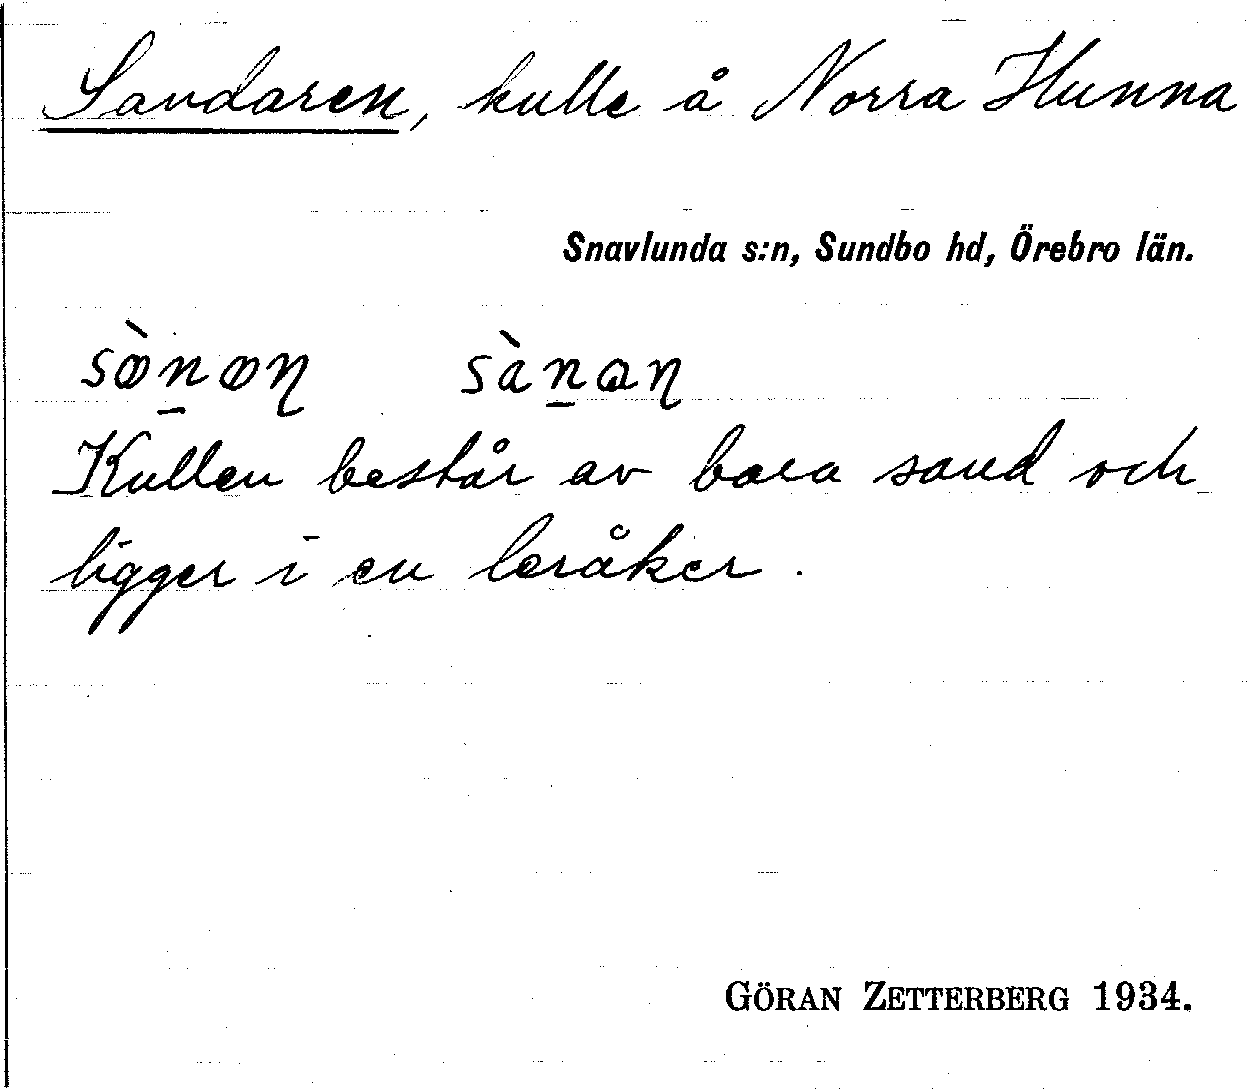 Sandaren, kulle å Norra Hunna
Snavlunda s:n, Sundbo hd, Örebro län.
Kullen består av bara sand och
ligger i en leråker.
GÖRAN ZETTERBERG 1934.